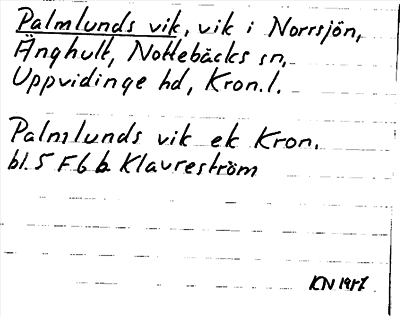 Palmlunds vik, vik i Norrsjön,
Änghult, Nottebäcks sn,
Uppvidinge hd, Kron.l.
Palmlunds vik ek Kron.
bl. 5 F 6 b Klavreström
KN